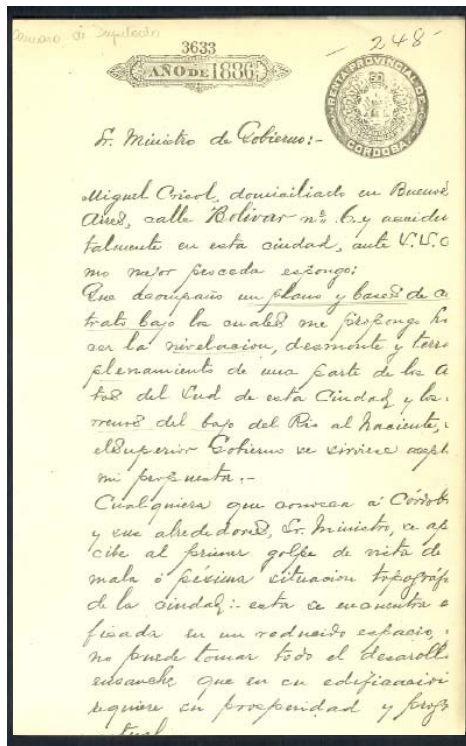 Camara de Diputados
3633
AÑO DE 1886
- 248 -
RENTA PROVINCIAL DE
CORDOBA
Sr. Ministro de Gobierno:-
Miguel Crisol, domiciliado en Buenos
Aires, calle Bolivar nº. 6. y acciden
talmente en esta ciudad, ante V.S. co
mo mejor proceda espongo:
Que acompaño un plano y bases de co
trato bajo los cuales me propongo ha
cer la nivelacion, desmonte y terra
plenamiento de una parte de los A
tos del Sud de esta Ciudad y los
rrenos del bajo del Rio al Naciente,
el Superior Gobierno se sirviese acept
mi propuesta.-
Cualquiera que conozca á Córdob
y sus alrededores, Sr. Ministro, se ap
cibe al primer golpe de vista de
mala ó pésima situacion topográf
de la ciudad: esta se encuentra e
ficada en un reducido espacio,
no puede tomar todo el desaroll
ensanche que en su edificacion
requiere su prosperidad y prog
actual